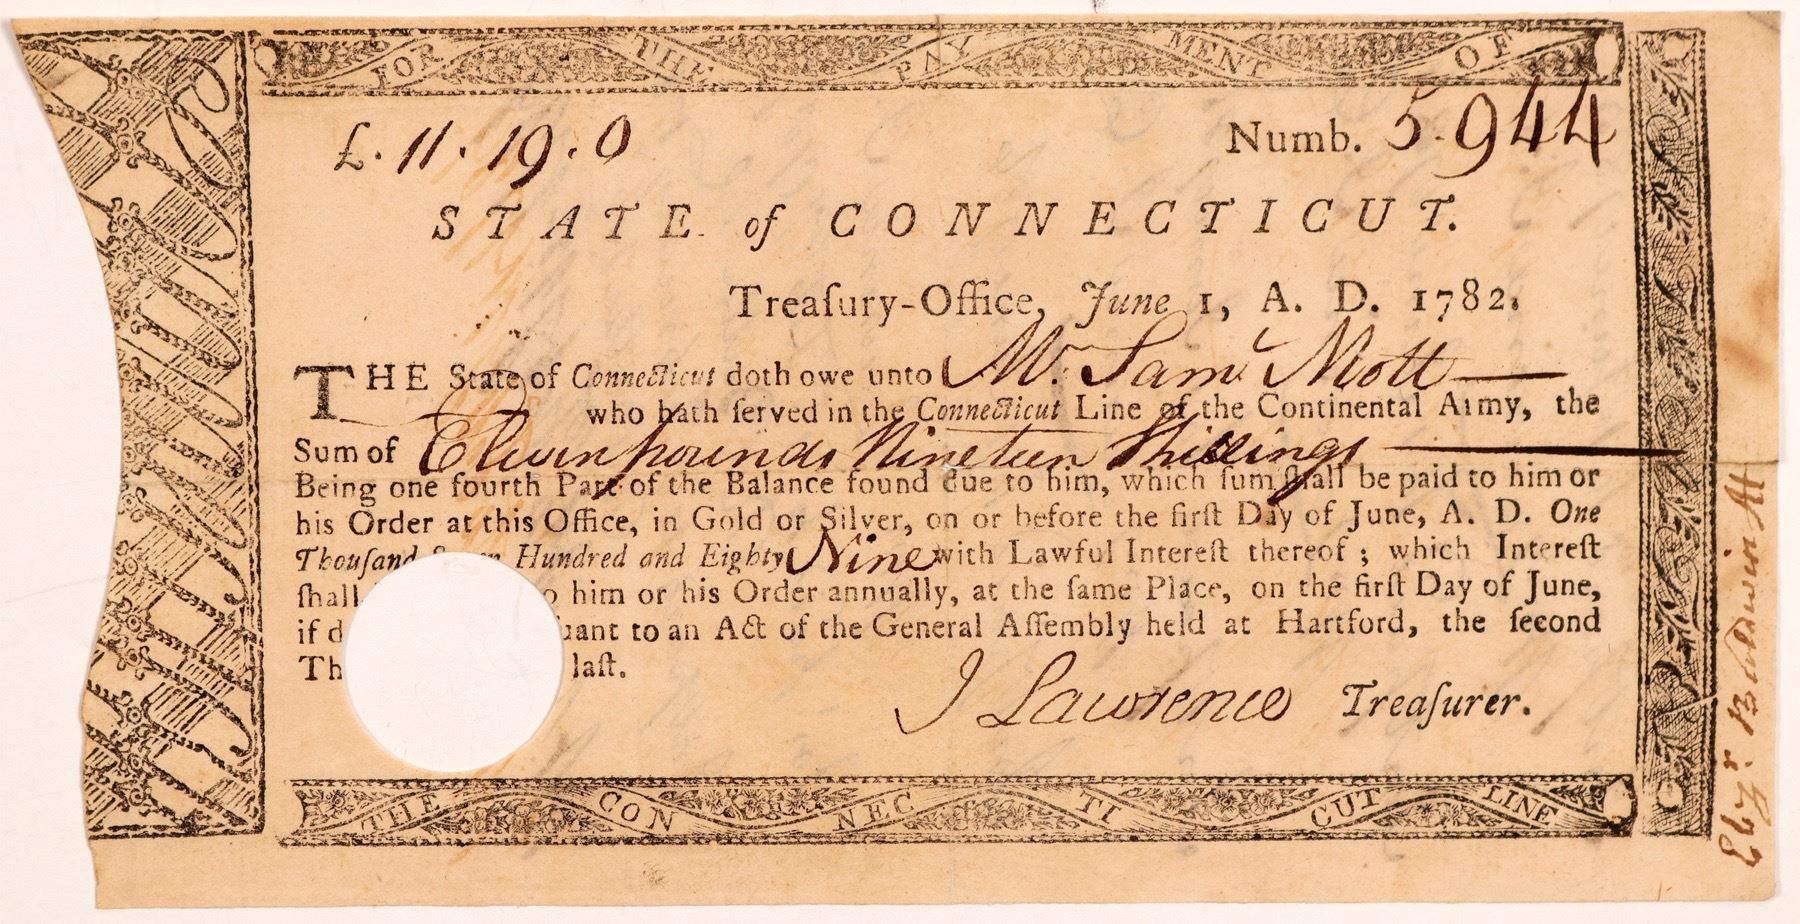 FOR THE PAY MENT OF
£. 11. 19. 0 Numb. 5.944
STATE of CONNECTICUT.
Treaſury-Office, June 1, A. D. 1782.
THE State of Connecticut doth owe unto Mr. Saml Mott
who hath ſerved in the Connecticut Line of the Continental Army, the
Sum of Eleven pounds Nineteen Shillings
Being one fourth Part of the Balance found due to him, which ſum ſhall be paid to him or
his Order at this Office, in Gold or Silver, on or before the firſt Day of June, A. D. One
Thouſand Hundred and Eighty Nine with Lawful Intereſt thereof; which Intereſt
ſhall him or his Order annually, at the ſame Place, on the firſt Day of June,
if to an Act of the General Aſſembly held at Hartford, the ſecond
laſt.
J Lawrence Treaſurer.
THE CON NEC TI CUT LINE
Baldwin